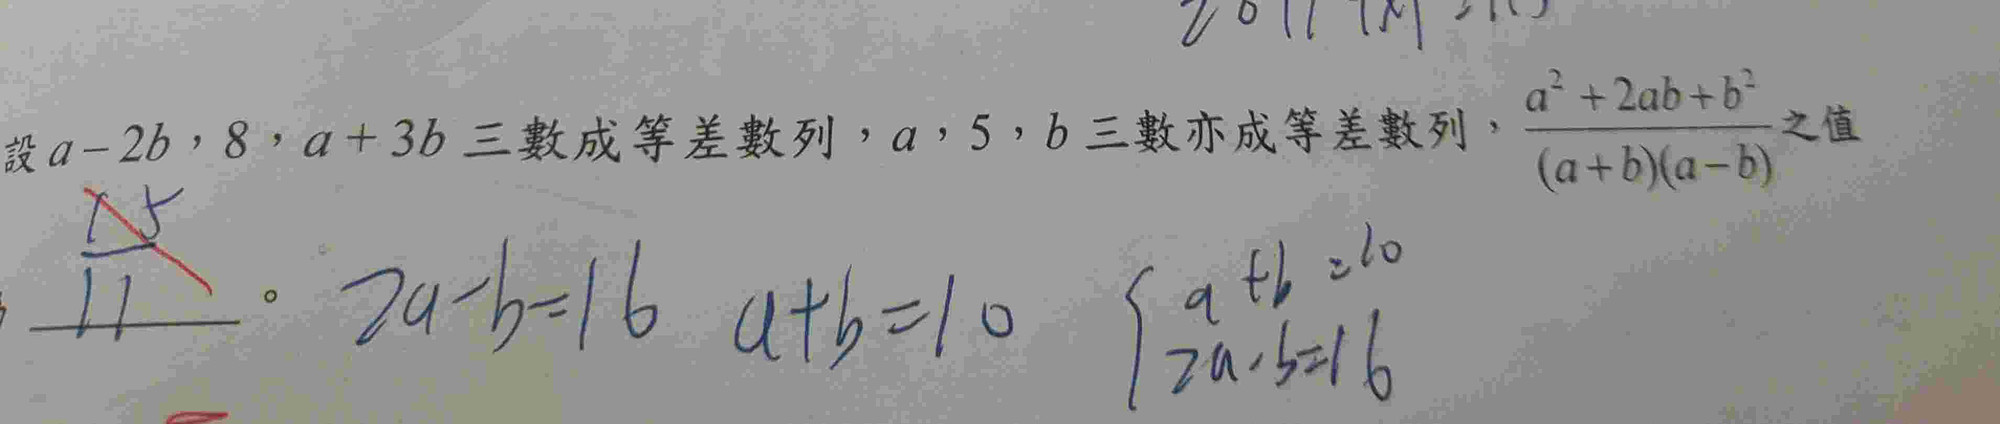 設 a－2b，8，a＋3b 三數成等差數列，a，5，b 三數亦成等差數列，\frac{a²+2ab+b²}{(a+b)(a−b)} 之值
\frac{15}{11}。 2a-b=16 a+b=10 { a+b=10
2a-b=16